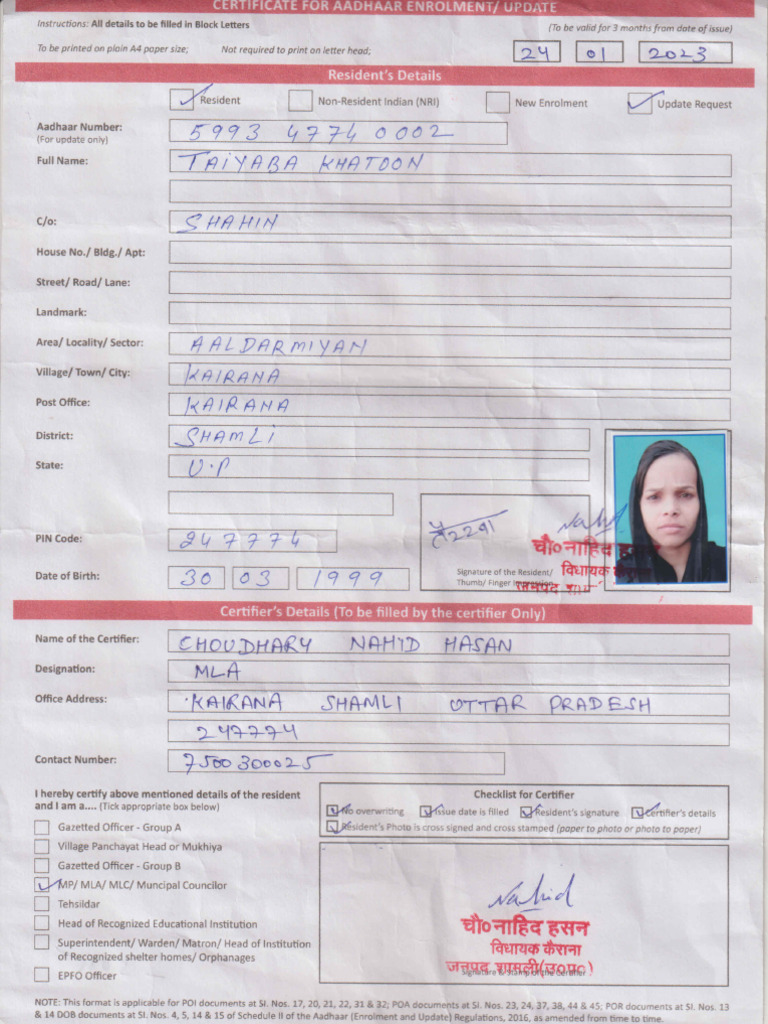 CERTIFICATE FOR AADHAAR ENROLMENT/ UPDATE
Instructions: All details to be filled in Block Letters
(To be valid for 3 months from date of issue)
To be printed on plain A4 paper size; Not required to print on letter head; 24 01 2023
Resident's Details
Resident Non-Resident Indian (NRI) New Enrolment Update Request
Aadhaar Number: 5993 4774 0002
(For update only)
Full Name: TAIYABA KHATOON
C/o: SHAHIN
House No./ Bldg./ Apt:
Street/ Road/ Lane:
Landmark:
Area/ Locality/ Sector: AALDARMIYAN
Village/ Town/ City: KAIRANA
Post Office: KAIRANA
District: SHAMLI
State: U.P
PIN Code: 247774
चौ० नाहिद हसन
Signature of the Resident/ विधायक कैराना
Thumb/ Finger Impression जनपद
Date of Birth: 30 03 1999
Certifier's Details (To be filled by the certifier Only)
Name of the Certifier: CHOUDHARY NAHID HASAN
Designation: MLA
Office Address: KAIRANA SHAMLI UTTAR PRADESH
247774
Contact Number: 7500300025
I hereby certify above mentioned details of the resident
and I am a.... (Tick appropriate box below)
Gazetted Officer - Group A
Village Panchayat Head or Mukhiya
Gazetted Officer - Group B
MP/ MLA/ MLC/ Muncipal Councilor
Tehsildar
Head of Recognized Educational Institution
Superintendent/ Warden/ Matron/ Head of Institution
of Recognized shelter homes/ Orphanages
EPFO Officer
Checklist for Certifier
No overwriting Issue date is filled Resident's signature Certifier's details
Resident's Photo is cross signed and cross stamped (paper to photo or photo to paper)
Nahid
चौ० नाहिद हसन
विधायक कैराना
जनपद शामली(उ०प्र०)
Signature & Stamp of the Certifier
NOTE: This format is applicable for POI documents at Sl. Nos. 17, 20, 21, 22, 31 & 32; POA documents at Sl. Nos. 23, 24, 37, 38, 44 & 45; POR documents at Sl. Nos. 13
& 14 DOB documents at Sl. Nos. 4, 5, 14 & 15 of Schedule II of the Aadhaar (Enrolment and Update) Regulations, 2016, as amended from time to time.